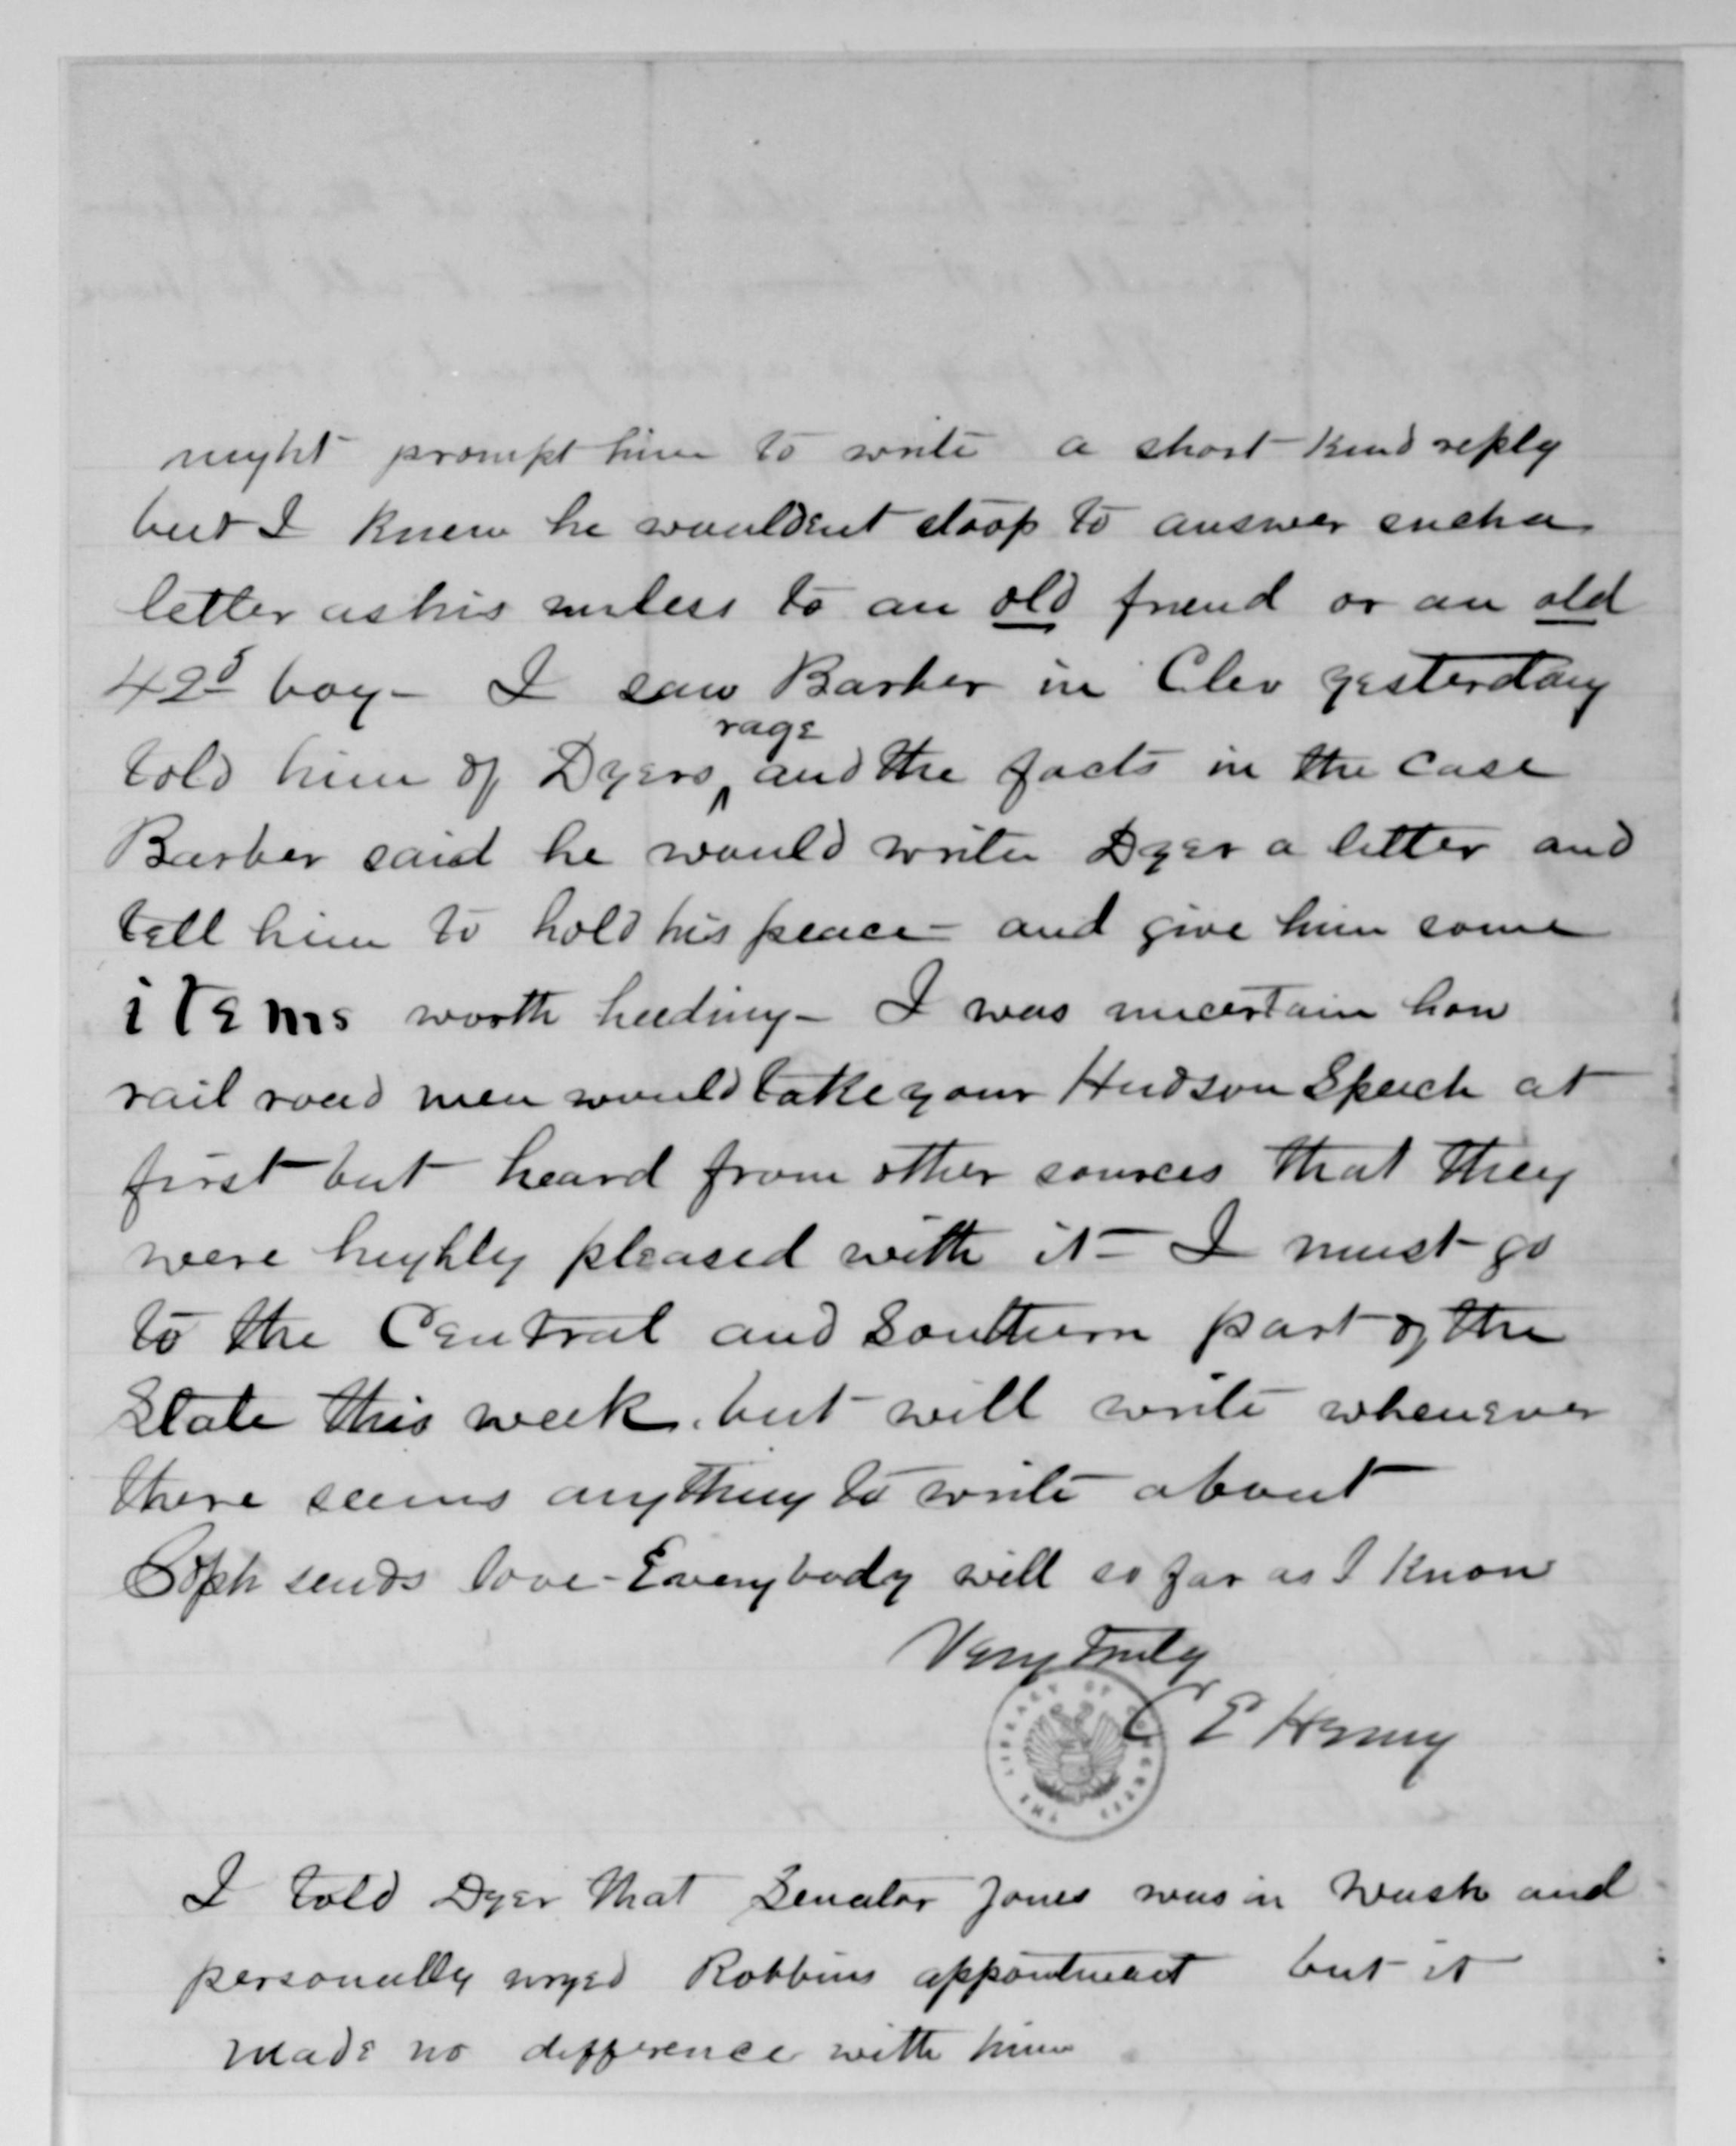 might prompt him to write a short kind reply
but I knew he wouldent stoop to answer such a
letter as his unless to an old friend or an old
42d boy - I saw Barber in Clev yesterday
rage
told him of Dyers ^ and the facts in the case
Barber said he would write Dyer a letter and
tell him to hold his peace - and give him some
items worth heeding - I was uncertain how
rail road men would take your Hudson Speech at
first but heard from other sources that they
were highly pleased with it - I must go
to the Central and Southern part of the
State this week. but will write whenever
there seems anything to write about
Soph sends love - Everybody well so far as I know
Very Truly
C E Henry
THE LIBRARY OF CONGRESS
I told Dyer that Senator Jones was in Wash and
personally urged Robbins appointment but it
made no difference with him